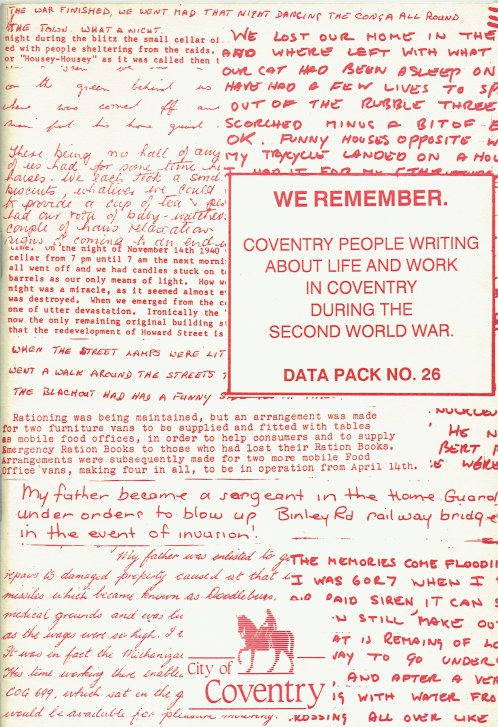 THE WAR FINISHED, WE WENT MAD THAT NIGHT DANCING THE CONGA ALL ROUND
THE TOWN. WHAT A NIGHT.
night during the blitz the small cellar of
ed with people sheltering from the raids.
or "Housey-Housey" as it was called then t
on the green behind us
there was corned off an
WE LOST OUR HOME IN THE
AND WHERE LEFT WITH WHAT
OUR CAT HAD BEEN ASLEEP ON
HAVE HAD A FEW LIVES TO SP
OUT OF THE RUBBLE THREE
SCORCHED MINUS A BIT OF E
OK. FUNNY HOUSES OPPOSITE W
MY TRYCYCLE LANDED ON A HOU
There being no hall of any
of us had for some time
houses. We each took a sand
biscuits, whatever we could
to provide a cup of tea &
had our rota of baby-watcher
couple of hours relaxation
nights coming to an end
time. On the night of November 14th 1940
cellar from 7 pm until 7 am the next morni
all went off and we had candles stuck on t
barrels as our only means of light. How w
night was a miracle, as it seemed almost e
was destroyed. When we emerged from the c
one of utter devastation. Ironically the
now the only remaining original building s
that the redevelopment of Howard Street is
WE REMEMBER.
COVENTRY PEOPLE WRITING
ABOUT LIFE AND WORK
IN COVENTRY
DURING THE
SECOND WORLD WAR.
DATA PACK NO. 26
WHEN THE STREET LAMPS WERE LIT
WENT A WALK AROUND THE STREETS
THE BLACKOUT HAD HAD A FUNNY
Rationing was being maintained, but an arrangement was made
for two furniture vans to be supplied and fitted with tables
as mobile food offices, in order to help consumers and to supply
Emergency Ration Books to those who had lost their Ration Books.
Arrangements were subsequently made for two more mobile Food
Office vans, making four in all, to be in operation from April 14th.
HE N
BERT
WERE
My father became a sergeant in the Home Guard
under orders to blow up Binley Rd railway bridge
in the event of invasion!
My father was enlisted to go
repairs to damaged property caused at that
missiles which became known as Doodlebugs.
medical grounds and was lu
as the wages were so high. I
It was in fact the Mechaniza
This time working there enable
COG 699, which sat in the g
would be available for pleasure motoring.
THE MEMORIES COME FLOODI
I WAS 6 OR 7 WHEN I
RAID SIREN IT CAN S
STILL MAKE OU
AT IS REMAING OF LO
WAY TO GO UNDER
AND AFTER A VER
WITH WATER FRO
CROSSING ALL OVER LIKE
City of
Coventry